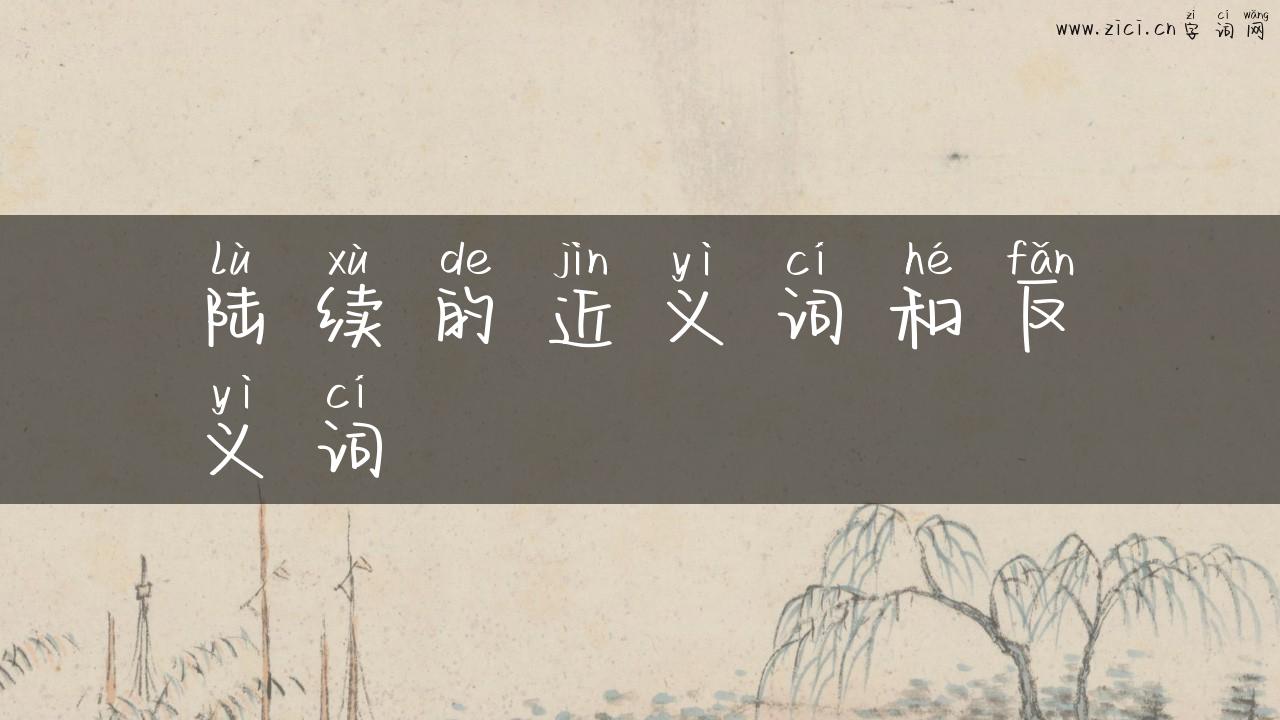 zì cí wǎng
www.zici.cn 字 词 网
lù xù de jìn yì cí hé fǎn
陆 续 的 近 义 词 和 反
yì cí
义 词